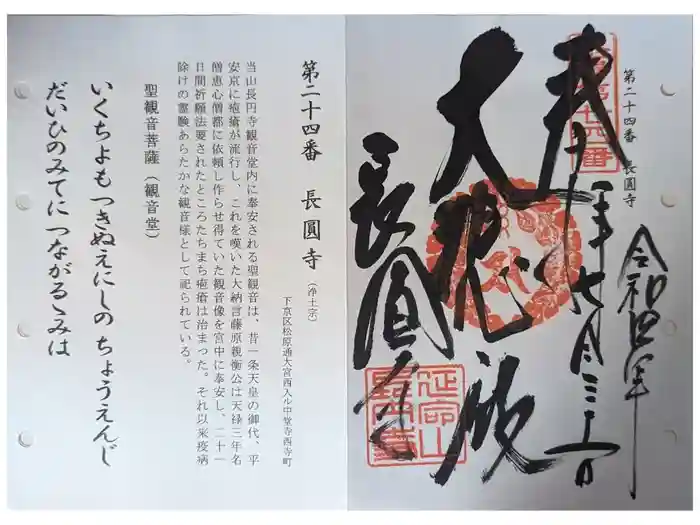 第二十四番 長圓寺
奉拝
令和四年七月三十一日
大悲殿
長圓寺
延命山
長円寺
第二十四番 長圓寺(浄土宗)
下京区松原通大宮西入ル中堂寺西寺町
当山長円寺観音堂内に奉安される聖観音は、昔一条天皇の御代、平
安京に疱瘡が流行し、これを嘆いた大納言藤原親衡公は天禄三年名
僧恵心僧都に依頼し作らせ得ていた観音像を宮中に奉安し、二十一
日間祈願法要されたところたちまち疱瘡は治まった。それ以来疫病
除けの霊験あらたかな観音様として祀られている。
聖観音菩薩(観音堂)
いくちよもつきぬえにしのちょうえんじ
だいひのみてにつながるゝみは